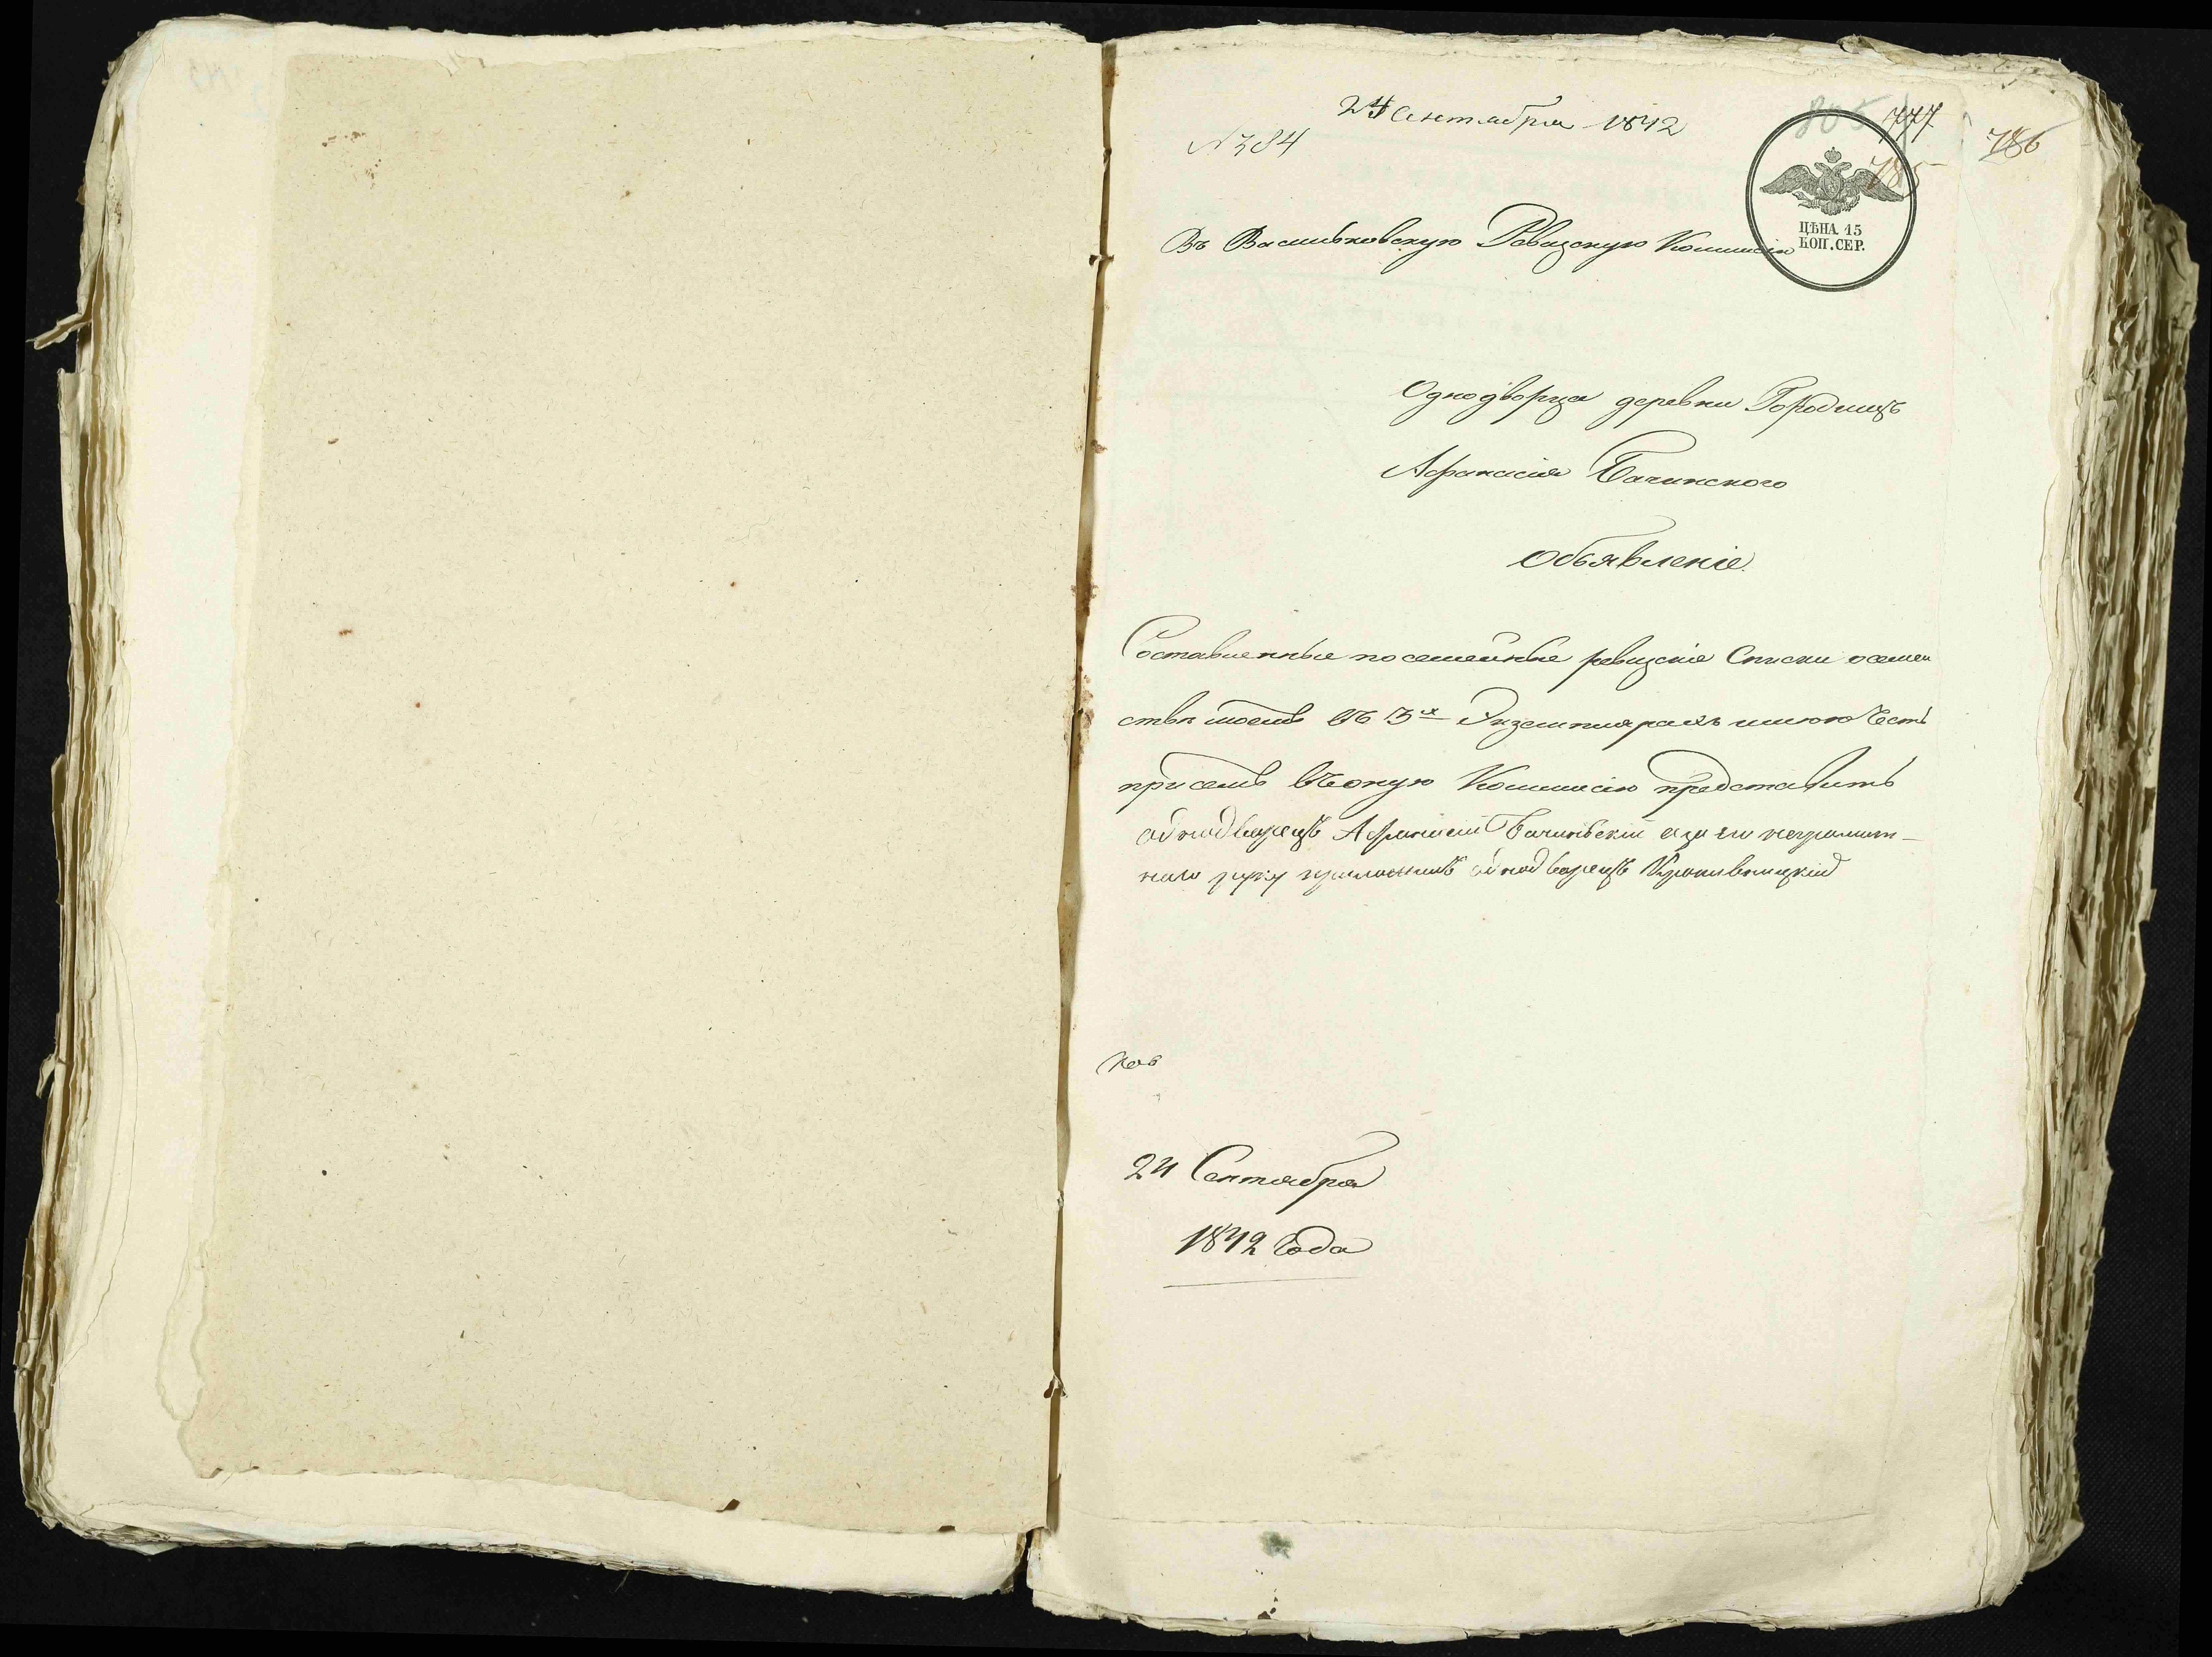 24 Сентября 1842
№ 384
805
777
785
786
ЦѢНА 15
КОП. СЕР.
Въ Васильковскую Ревизскую Комисію
Однодворца деревни Городищъ
Афанасія Бачинского
Объявленіе
Составленные посемейные ревизскіе Списки осемей
ствѣ моемъ въ 3х Экземплярахъ имѣю Честь
присемъ въоную Коммисію представить
однодворецъ Афанасій Бачинскій а за его неграмот-
наго руку приложилъ однодворецъ
24 Сентября
1842 Года